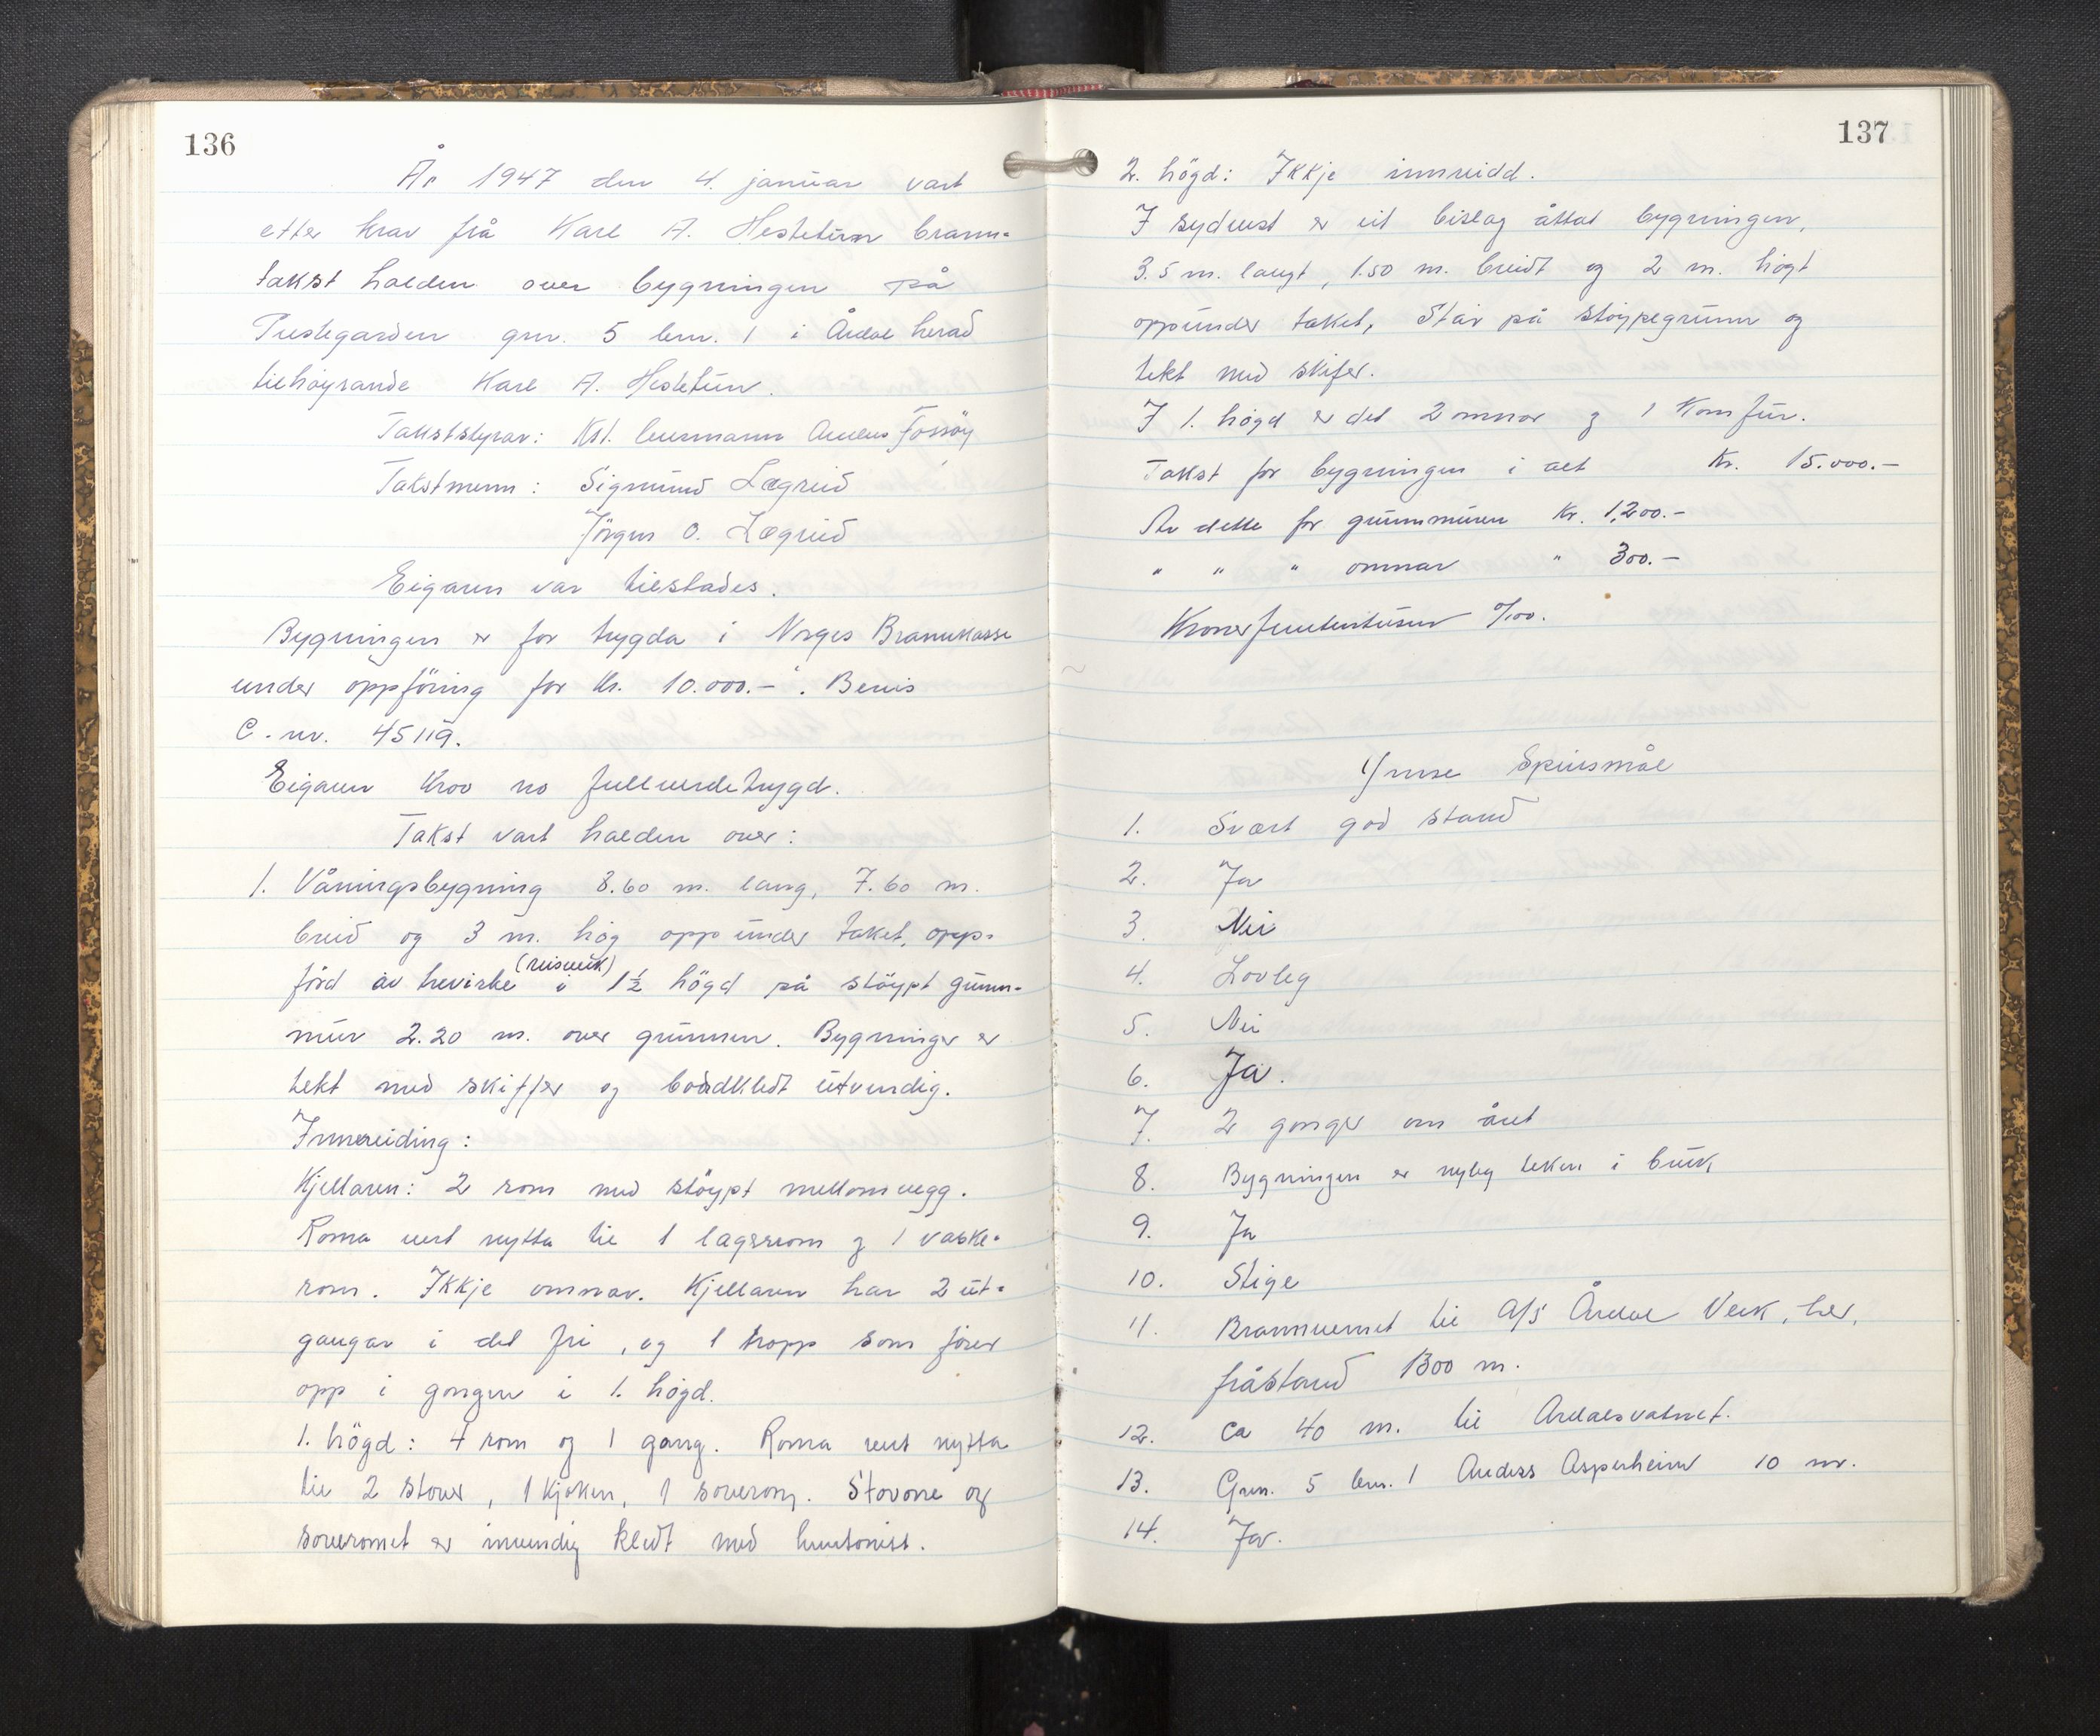 136
År 1947 den 4. januar vart
etter krav frå Karl A. Hestetun brann-
takst halden over bygningen på
Prestegarden gnr. 5 bnr. 1 i Årdal herad
tilhøyrande Karl A. Hestetun.
Takststyrar: Kst. lensmann Anders Fossøy
Takstmenn: Sigmund Lægreid
Jörgen O. Lægreid
Eigaren var tilstades.
Bygningen er for trygda i Norges Brannkasse
under oppföring for kr. 10.000.-. Bevis
C. nr. 45119.
Eigaren krov no fullverdetrygd.
Takst vart halden over:
1. Våningsbygning 8.60 m. lang, 7.60 m.
breid og 3 m. høg opp under taket, opp-
förd av trevirke (reisverk) i 1½ högd på stöypt grunn-
mur 2.20 m. over grunnen. Bygninger er
tekt med skiffer og bordkledt utvendig.
Innreiding:
Kjellaren: 2 rom med stöypt mellomvegg.
Roma vert nytta til 1 lagsrom og 1 vaske-
rom. Ikkje omnar. Kjellaren har 2 ut-
gangar i det fri, og 1 tropp som förer
opp i gongen i 1. högd.
1. högd: 4 rom og 1 gang. Roma vert nytta
til 2 stover, 1 kjøken, 1 soverom. Stovone og
soveromet er invendig kledt med huntonitt.
137
2. högd: Ikkje innreidd.
I sydvest er eit bislag åttåt bygningen,
3.5 m. langt, 1.50 m. breidt og 2 m. högt
oppunder taket, Står på stöypegrunn og
tekt med skifer.
I 1. högd er det 2 omnar og 1 Komfur.
Takst for bygningen i alt Kr. 15.000.-
Av dette for grunnmuren Kr. 1,200.-
" " " omnar " 300.-
Kronerfemtentusen 0/100.
Ymse Spursmål
1. Svært god stand
2. Ja
3. Nei
4. Lovleg
5. Nei
6. Ja.
7. 2 gonger om året
8. Bygningen er nyleg teken i bruk
9. Ja
10. Stige
11. Brannvernet til A/S Årdal Verk, her,
fråstand 1300 m.
12. ca 40 m. til Årdalsvatnet.
13. Gnr. 5 bnr. 1 Anders Asperheim 10 m.
14. Ja.